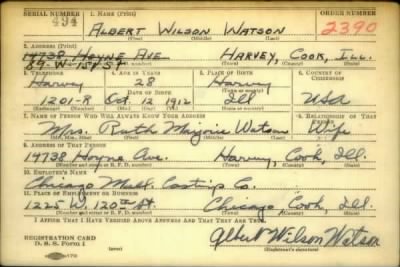 SERIAL NUMBER 1. NAME (Print) ORDER NUMBER
494 ALBERT WILSON WATSON 2390
(First) (Middle) (Last)
2. ADDRESS (Print)
14738 HOYNE AVE HARVEY, COOK, ILL.
89 W-151 ST
(Number and street or R. F. D. number) (Town) (County) (State)
3. TELEPHONE 4. AGE IN YEARS 5. PLACE OF BIRTH 6. COUNTRY OF CITIZENSHIP
Harvey 28 Harvey
DATE OF BIRTH (Town or county)
1201-R Oct. 12 1912 Ill USA
(Exchange) (Number) (Mo.) (Day) (Yr.) (State or country)
7. NAME OF PERSON WHO WILL ALWAYS KNOW YOUR ADDRESS 8. RELATIONSHIP OF THAT PERSON
Mrs. Ruth Marjorie Watson Wife
(Mr., Mrs., Miss) (First) (Middle) (Last)
9. ADDRESS OF THAT PERSON
14738 Hoyne Ave. Harvey, Cook, Ill.
(Number and street or R. F. D. number) (Town) (County) (State)
10. EMPLOYER'S NAME
Chicago Mall. Castings Co.
11. PLACE OF EMPLOYMENT OR BUSINESS
1225 W. 120th St. Chicago, Cook, Ill.
(Number and street or R. F. D. number) (Town) (County) (State)
I AFFIRM THAT I HAVE VERIFIED ABOVE ANSWERS AND THAT THEY ARE TRUE.
REGISTRATION CARD
D. S. S. Form 1 Albert Wilson Watson
(Registrant's signature)